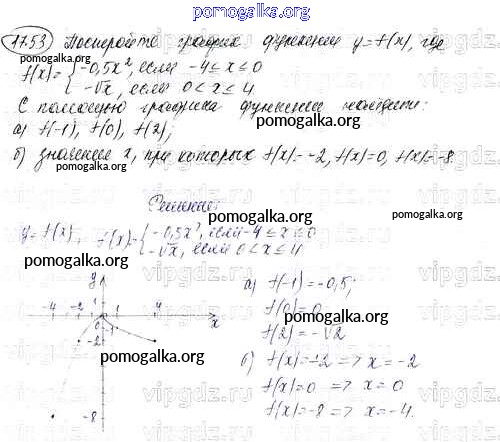 pomogalka.org
17.53 Постройте график функции y=f(x), где
pomogalka.org
f(x)={-0,5x², если -4≤x≤0
-√x, если 0<x≤4
pomogalka.org
С помощью графика функции найдите:
а) f(-1), f(0), f(2);
pomogalka.org
б) значение x, при которых f(x)=-2, f(x)=0, f(x)=-8.
pomogalka.org
pomogalka.org
Решение:
pomogalka.org
y=f(x), f(x)={-0,5x², если -4≤x≤0
-√x, если 0<x≤4
pomogalka.org
pomogalka.org
y
-4 -2 1 1 4
0 x
-2
-8
а) f(-1)=-0,5;
f(0)=0
f(2)=-√2
pomogalka.org
pomogalka.org
б) f(x)=-2 => x=-2
f(x)=0 => x=0
f(x)=-8 => x=-4.
pomogalka.org
vipgdz.ru